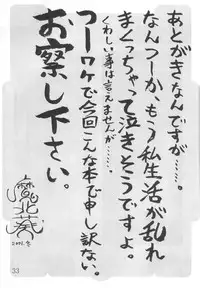 あとがきなんですが……。
なんつーか、もう私生活が乱れ
まくっちゃって泣きそうですよ。
くわしい事は言えませんが……。
つーワケで今回こんな本で申し訳ない。
お察し下さい。
33